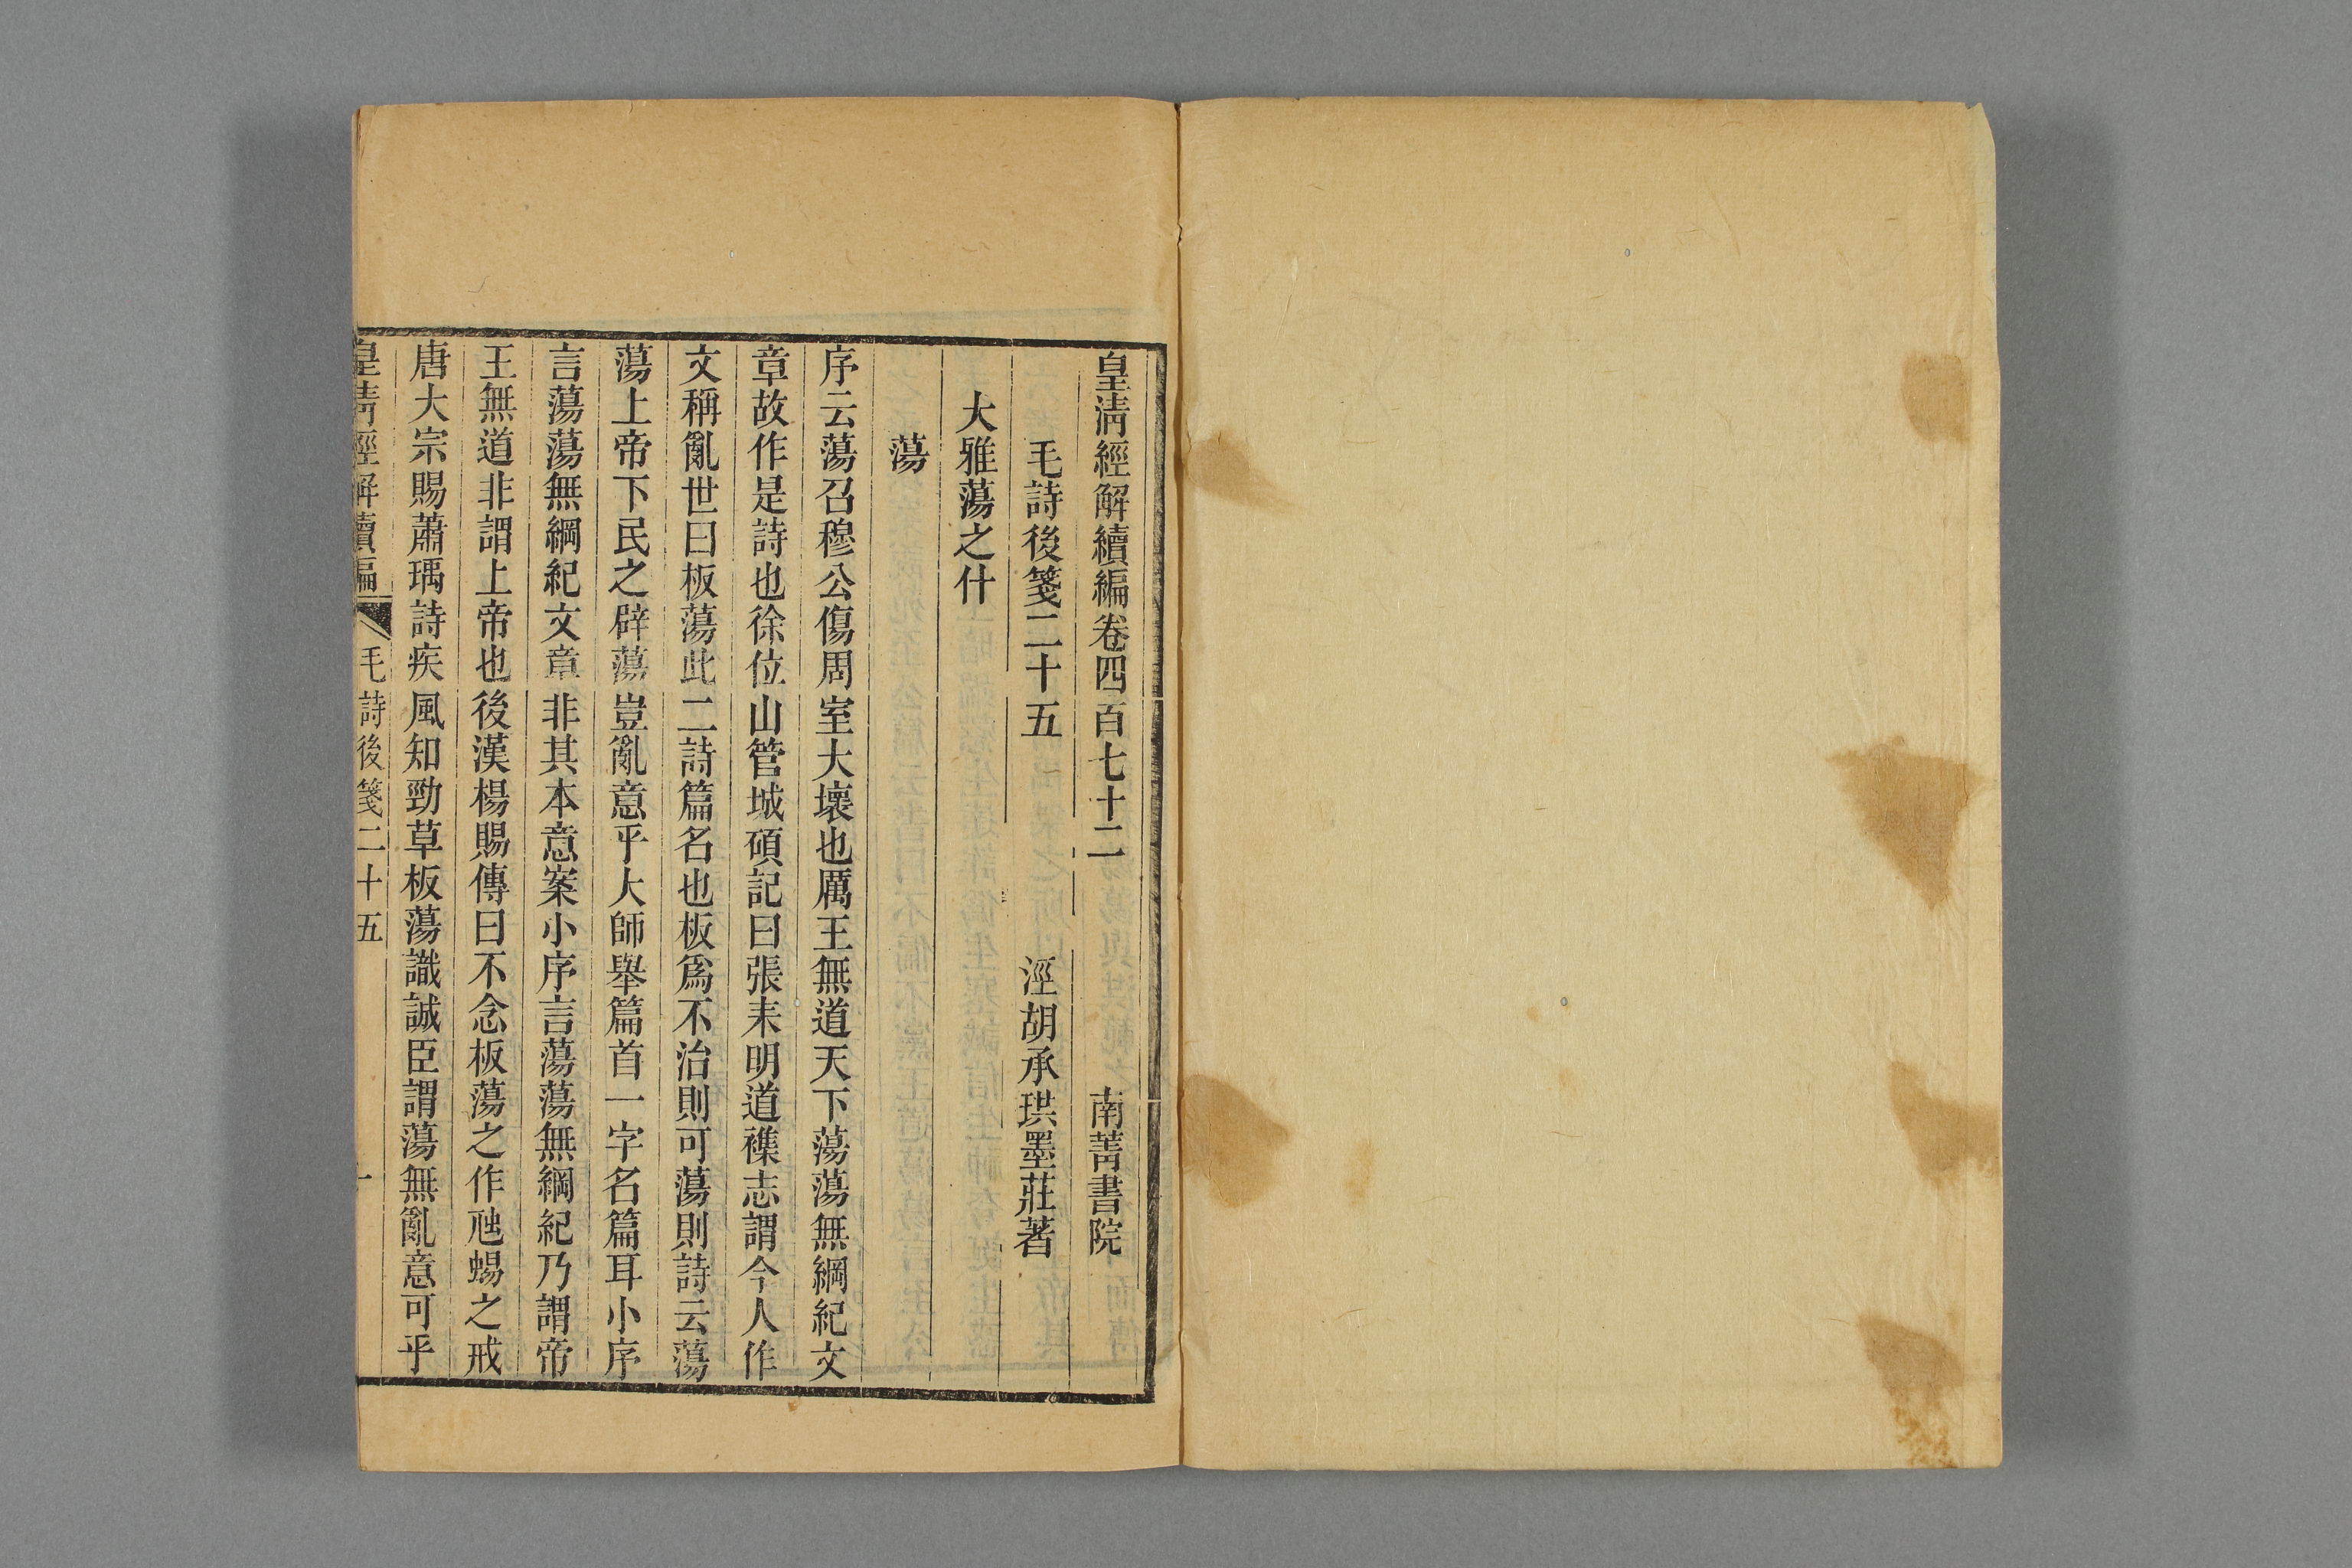 皇淸經解續編卷四百七十二 南菁書院
毛詩後箋二十五 涇胡承珙墨莊著
大雅蕩之什
蕩
序云蕩召穆公傷周室大壞也厲王無道天下蕩蕩無綱紀文
章故作是詩也徐位山管城碩記曰張耒明道襍志謂今人作
文稱亂世曰板蕩此二詩篇名也板爲不治則可蕩則詩云蕩
蕩上帝下民之辟蕩豈亂意乎大師舉篇首一字名篇耳小序
言蕩蕩無綱紀文章非其本意案小序言蕩蕩無綱紀乃謂帝
王無道非謂上帝也後漢楊賜傳曰不念板蕩之作虺蜴之戒
唐大宗賜蕭瑀詩疾風知勁草板蕩識誠臣謂蕩無亂意可乎
皇淸經解續編 毛詩後箋二十五 一